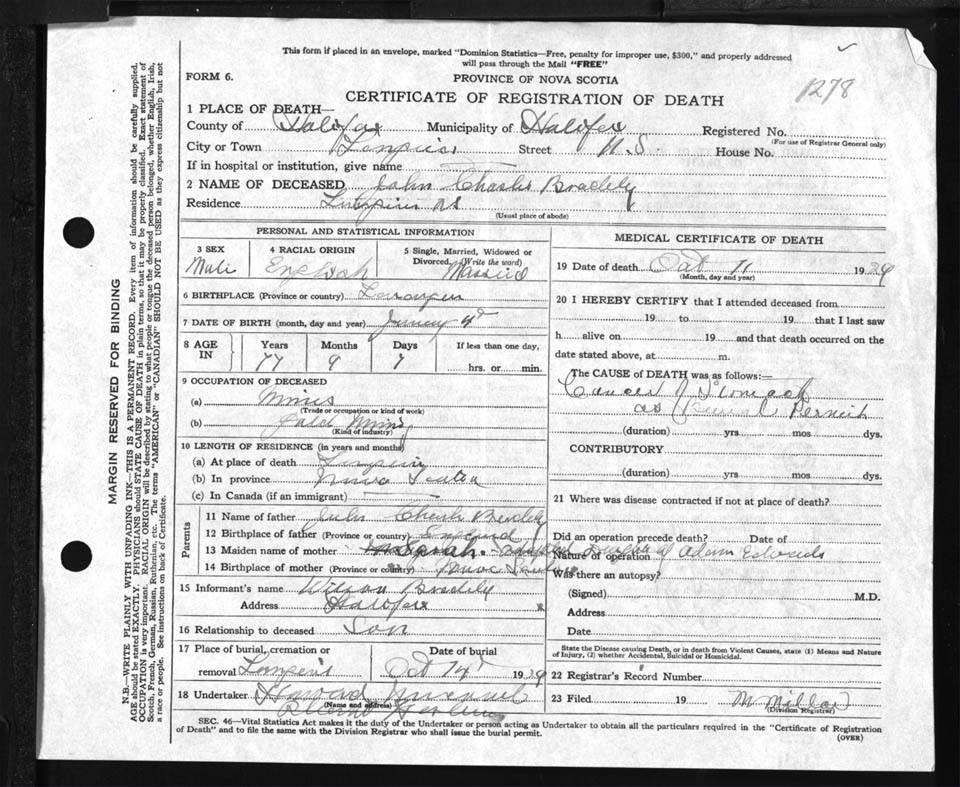 This form if placed in an envelope, marked "Dominion Statistics—Free, penalty for improper use, $300," and properly addressed
will pass through the Mail "FREE"
FORM 6.
PROVINCE OF NOVA SCOTIA
1278
CERTIFICATE OF REGISTRATION OF DEATH
1 PLACE OF DEATH—
County of Halifax Municipality of Halifax Registered No.
(For use of Registrar General only)
City or Town Street N.S. House No.
If in hospital or institution, give name
2 NAME OF DECEASED John Charles
Residence N.S.
(Usual place of abode)
PERSONAL AND STATISTICAL INFORMATION
3 SEX 4 RACIAL ORIGIN 5 Single, Married, Widowed or
Divorced (Write the word)
Male English Married
6 BIRTHPLACE (Province or country)
7 DATE OF BIRTH (month, day and year)
8 AGE IN Years Months Days If less than one day,
77 9 7 hrs. or min.
9 OCCUPATION OF DECEASED
(a)
(Trade or occupation or kind of work)
(b) Gold
(Kind of industry)
10 LENGTH OF RESIDENCE (in years and months)
(a) At place of death
(b) In province Nova Scotia
(c) In Canada (if an immigrant)
Parents
11 Name of father John Charles
12 Birthplace of father (Province or country) England
13 Maiden name of mother Sarah
14 Birthplace of mother (Province or country) Nova Scotia
15 Informant's name
Address Halifax
16 Relationship to deceased Son
17 Place of burial, cremation or Date of burial
removal Oct 14 1939
18 Undertaker
(Name and address)
MEDICAL CERTIFICATE OF DEATH
19 Date of death Oct 11 1939
(Month, day and year)
20 I HEREBY CERTIFY that I attended deceased from
19 to 19 that I last saw
h alive on 19 and that death occurred on the
date stated above, at m.
The CAUSE of DEATH was as follows:—
Cancer of Stomach
as Permit
(duration) yrs mos dys.
CONTRIBUTORY
(duration) yrs mos dys.
21 Where was disease contracted if not at place of death?
Did an operation precede death? Date of
Nature of operation Adam
Was there an autopsy?
(Signed) M.D.
Address
Date
State the Disease causing Death, or in death from Violent Causes, state (1) Means and Nature
of Injury, (2) whether Accidental, Suicidal or Homicidal.
22 Registrar's Record Number
23 Filed 19 M Millar
(Division Registrar)
SEC. 46—Vital Statistics Act makes it the duty of the Undertaker or person acting as Undertaker to obtain all the particulars required in the "Certificate of Registration
of Death" and to file the same with the Division Registrar who shall issue the burial permit.
(OVER)
MARGIN RESERVED FOR BINDING
N.B.—WRITE PLAINLY WITH UNFADING INK—THIS IS A PERMANENT RECORD. Every item of information should be carefully supplied.
AGE should be stated EXACTLY. PHYSICIANS should STATE CAUSE OF DEATH in plain terms, so that it may be properly classified. Exact statement of
OCCUPATION is very important. RACIAL ORIGIN will be described by stating to what people or tongue the deceased person belonged, whether English, Irish,
Scotch, French, German, Russian, Ruthenian, etc. The terms "AMERICAN" or "CANADIAN" SHOULD NOT BE USED as they express citizenship but not
a race or people. See instructions on back of Certificate.